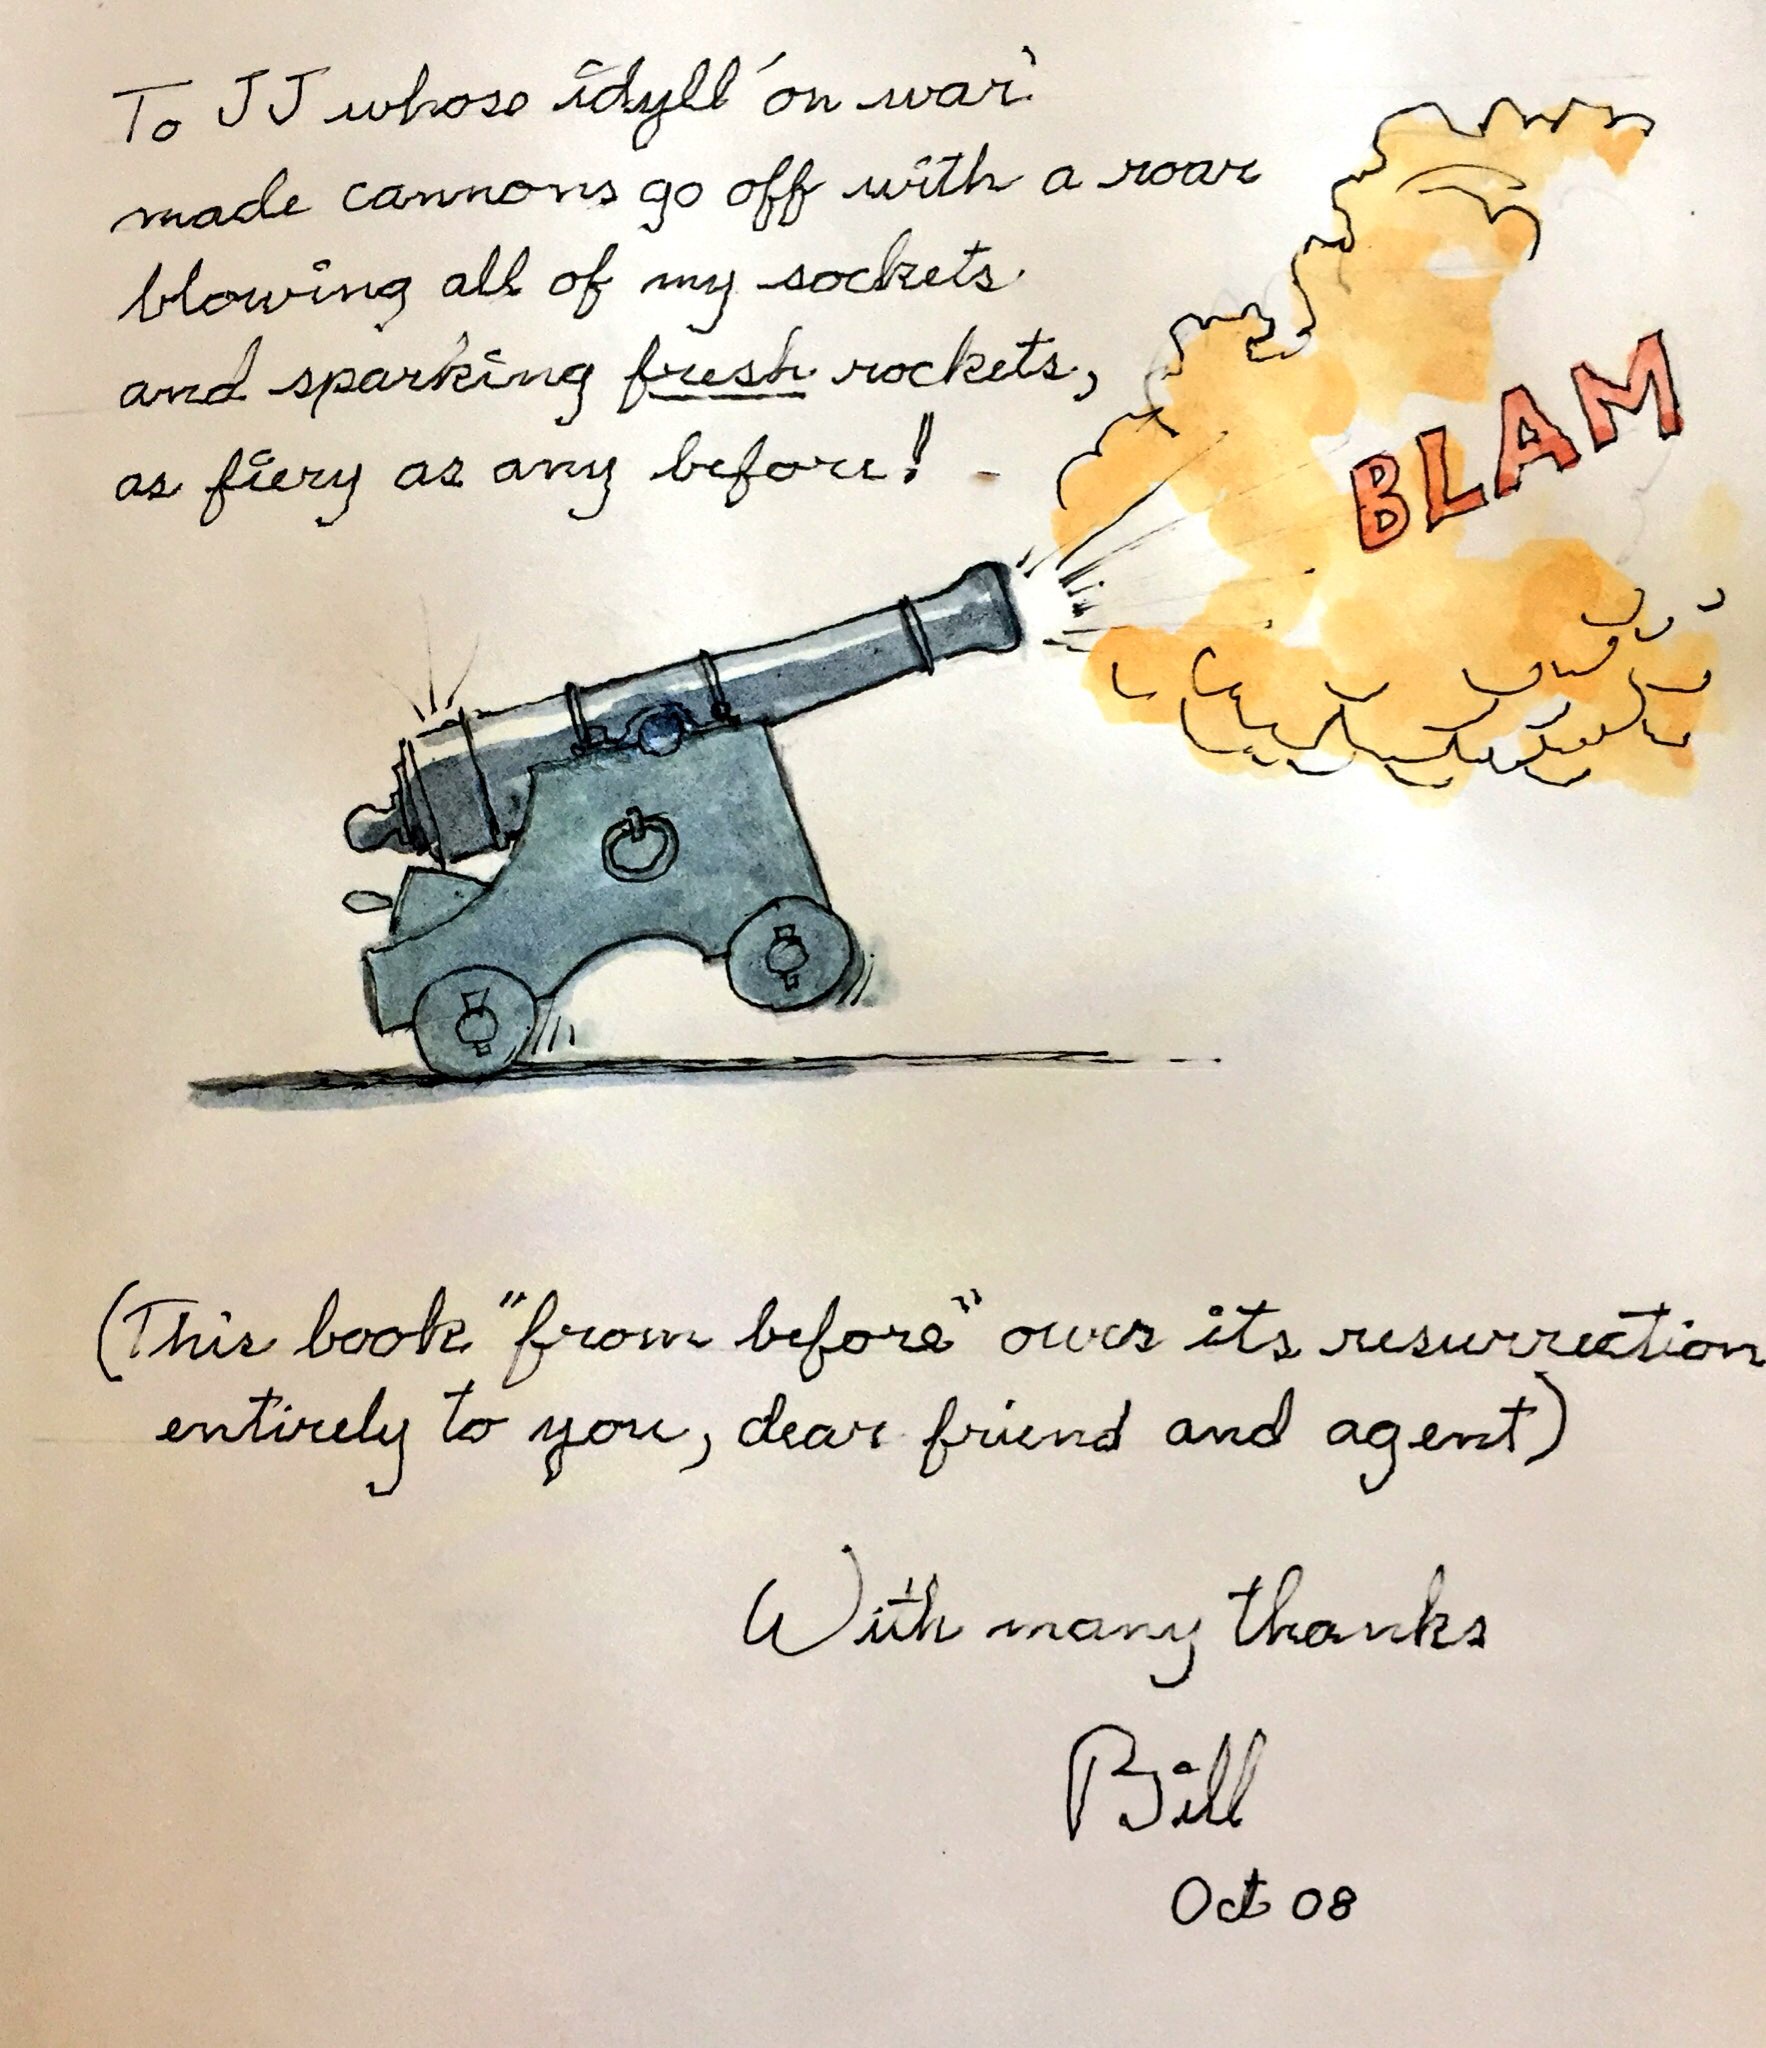 To JJ whose idyll 'on war'
made cannons go off with a roar
blowing all of my sockets
and sparking fresh rockets,
as fiery as any before!
BLAM
(This book "from before" owes its resurrection
entirely to you, dear friend and agent)
With many thanks
Bill
Oct 08